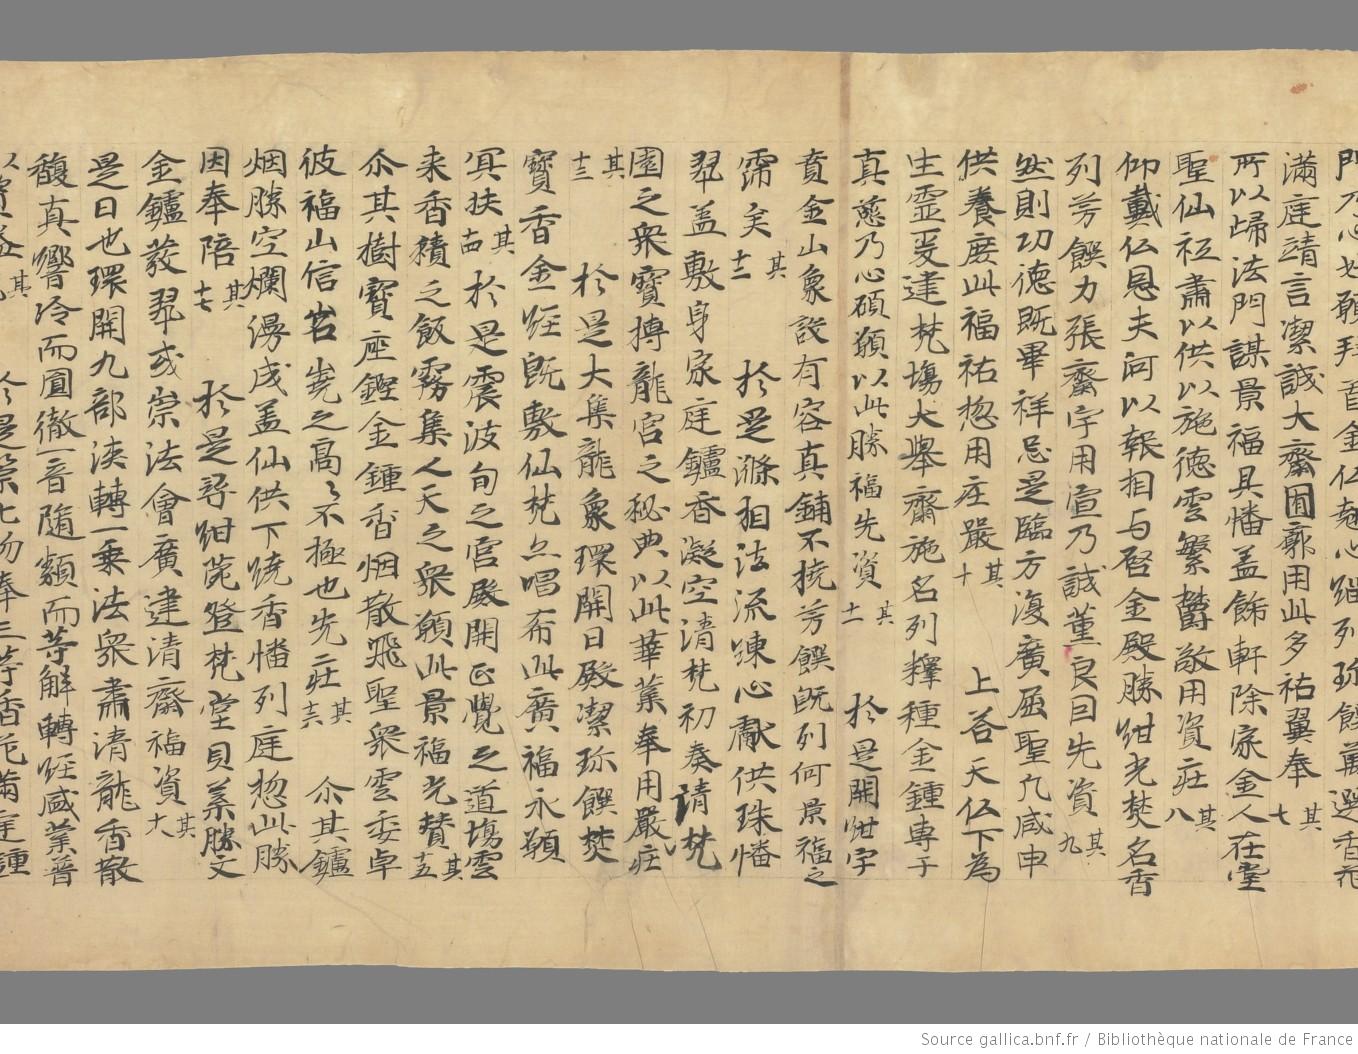 滿庭請言潔誠大齋囿廓用此多祐翼奉其七
所以歸法門謀景福具幡盖飾軒除家金人在堂
聖仙祗肅以供以施德雲繁欝敬用資庄其八
仰戴仏恩夫何以報相与啓金殿勝紺光焚名香
列芳饌力張齋宇用宣乃誠薫良囙先資其九
然則功德既畢祥忌是臨方復廣屈聖凢咸申
供養庻此福祐惣用庄嚴其十 上荅天仏下為
生霊爰建梵塲大舉齋施名列釋種金鍾専于
真慈乃心碩願以此勝福先資其十一 於是開紺宇
賁金山象設有容真鋪不撓芳饌既列何景福之
霈矣其十二 於是滌相法流練心獻供珠幡
翠盖敷身家庭鑪香凝空清梵初奏請梵
園之衆寶搏龍宮之秘典以此華業奉用嚴庄
其十三 於是大集龍象環開日殿潔珎饌焚
寶香金經既敷仙梵亦唱布此廣福永願
冥扶其十四 於是震波旬之宮殿開正覺之道塲雲
来香積之飯霧集人天之衆願此景福光賛其十五
尒其樹寶座鏗金鍾香烟散飛聖衆雲委卓
彼福山信岧嶤之髙々不極也先庄其十六 尒其鑪
烟勝空爛漫成盖仙供下燒香幡列庭惣此勝
因奉陪其十七 於是尋紺菀登梵堂貝葉勝文
金鑪發翠或崇法會廣建清齋福資其十八
是日也環開九部浹轉一乗法衆肅清龍香散
馥真響泠而圓徹一音隨類而等解轉經咸業普